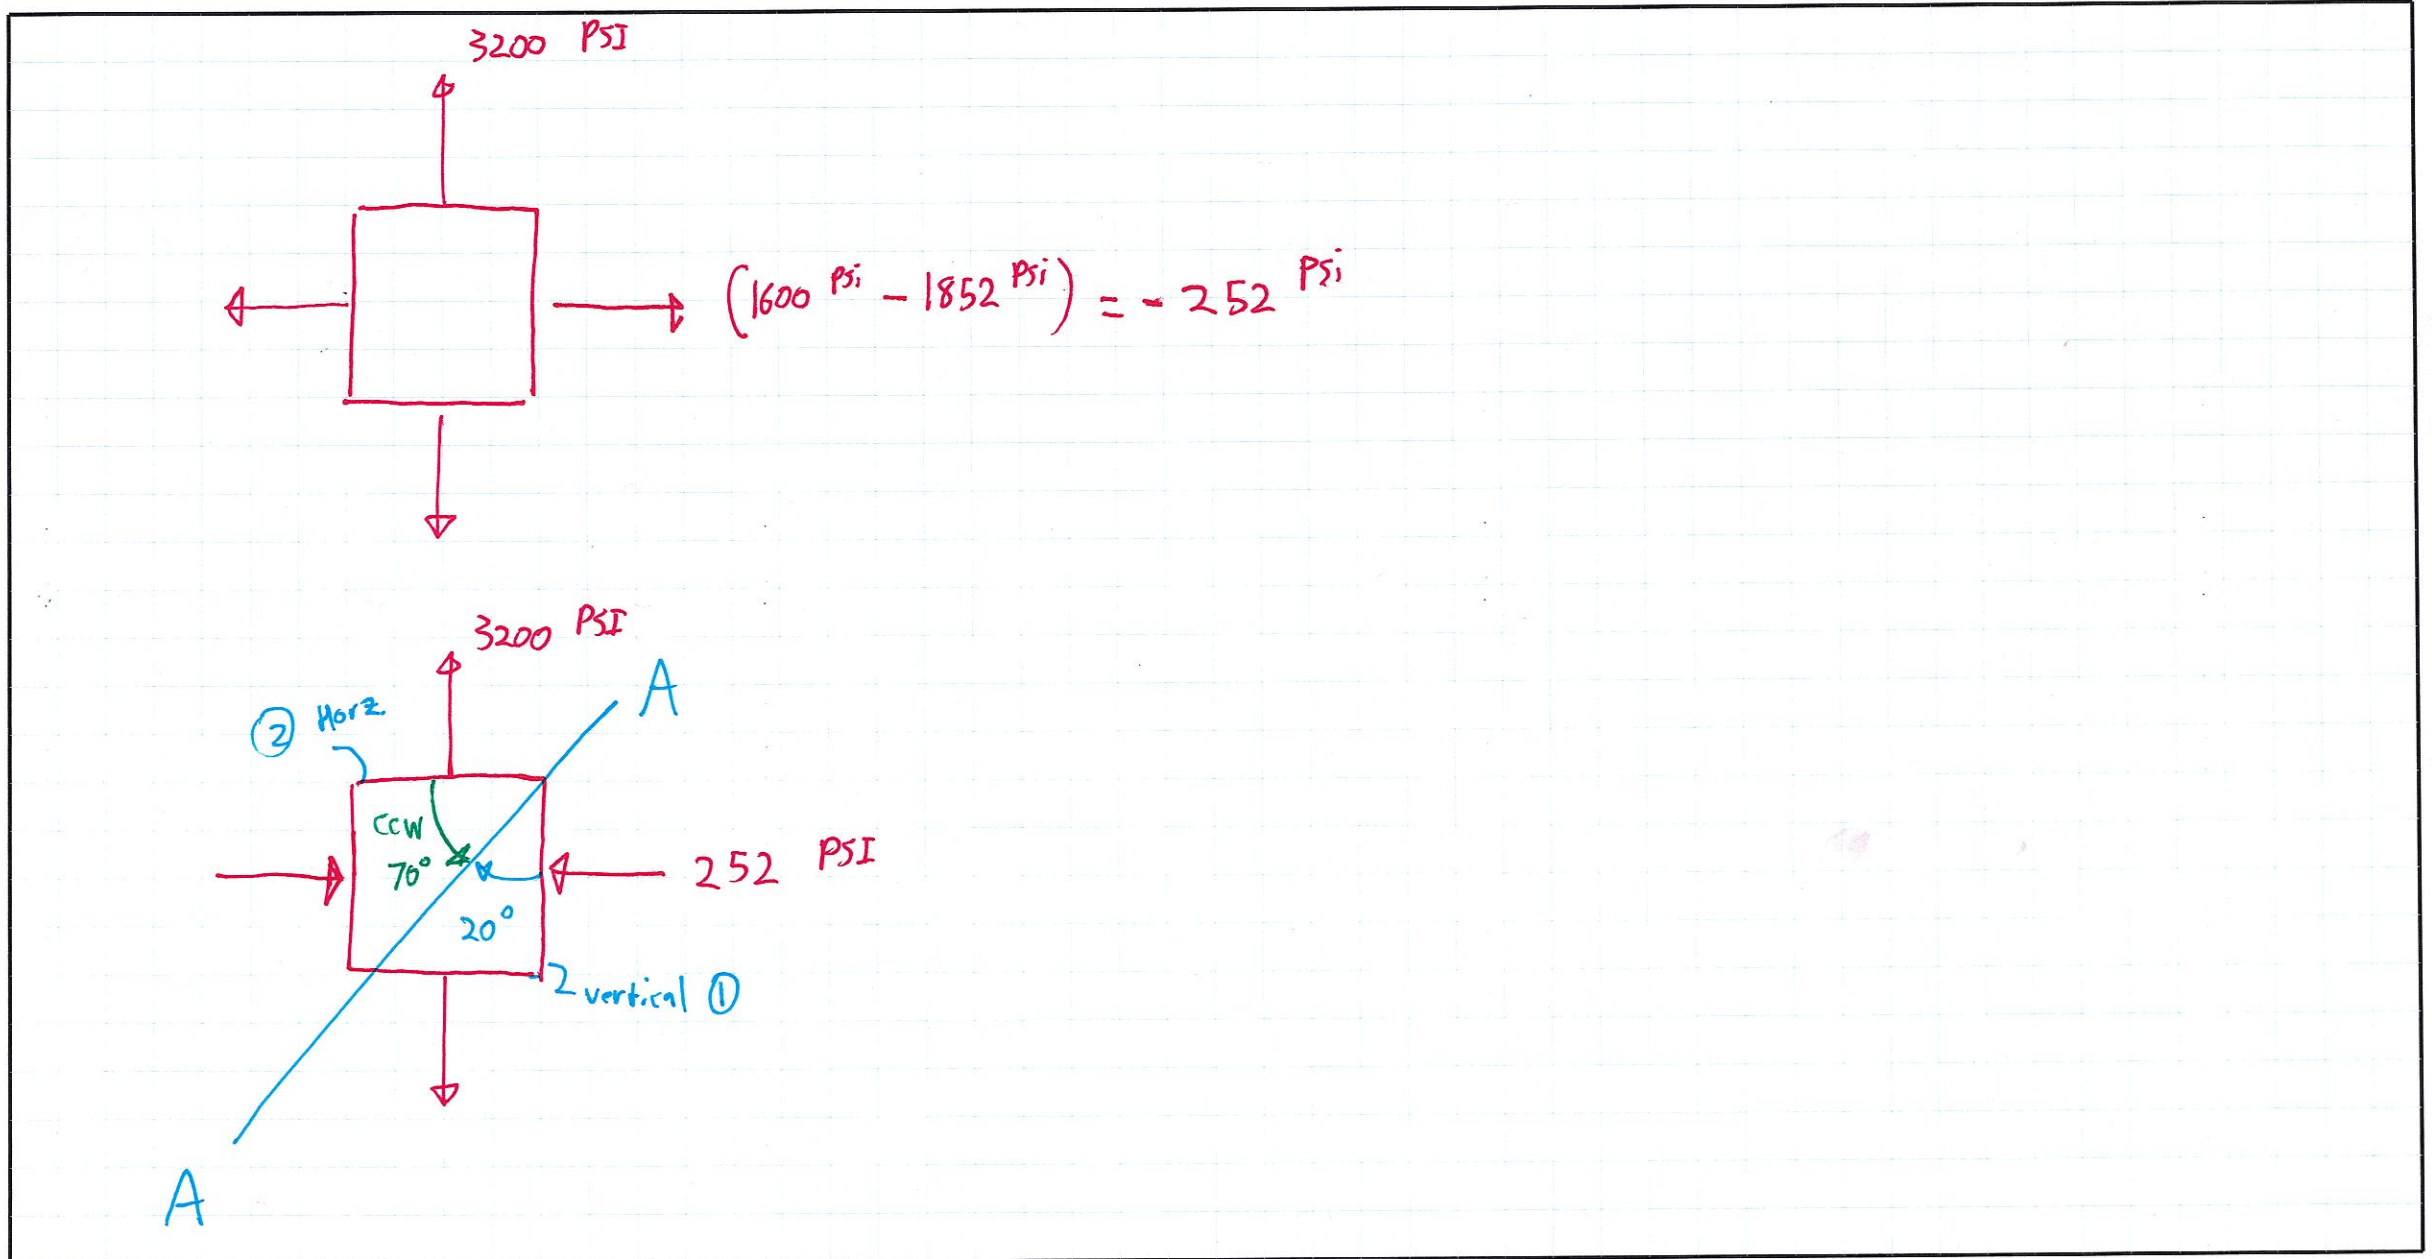 3200 PSI
(1600 psi - 1852 psi) = - 252 psi
3200 PSI
A
② Horz
CCW
70°
252 PSI
20°
vertical ①
A